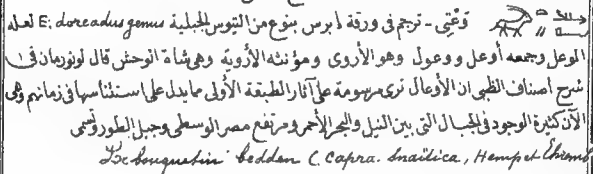 وَعْتِى - ترجم فى ورقة لابرس بنوع من التيوس الجبلية E: dorcadus genus لعله
الوعل وجمعه أوعل ووعول وهو الأروى ومؤنثه الأروية وهى شاة الوحش قال لونورمان فى
شرح أصناف الظبى ان الأوعال ترى مرسومة على آثار الطبقة الأولى مما يدل على استئناسها فى زمانهم وهى
الآن كثيرة الوجود فى الجبال التى بين النيل والبحر الأحمر ومرتفع مصر الوسطى وجبل الطور وتسمى
Le bouquetin beden C. Capra. Sinaïtica, Hemp et Ehremb